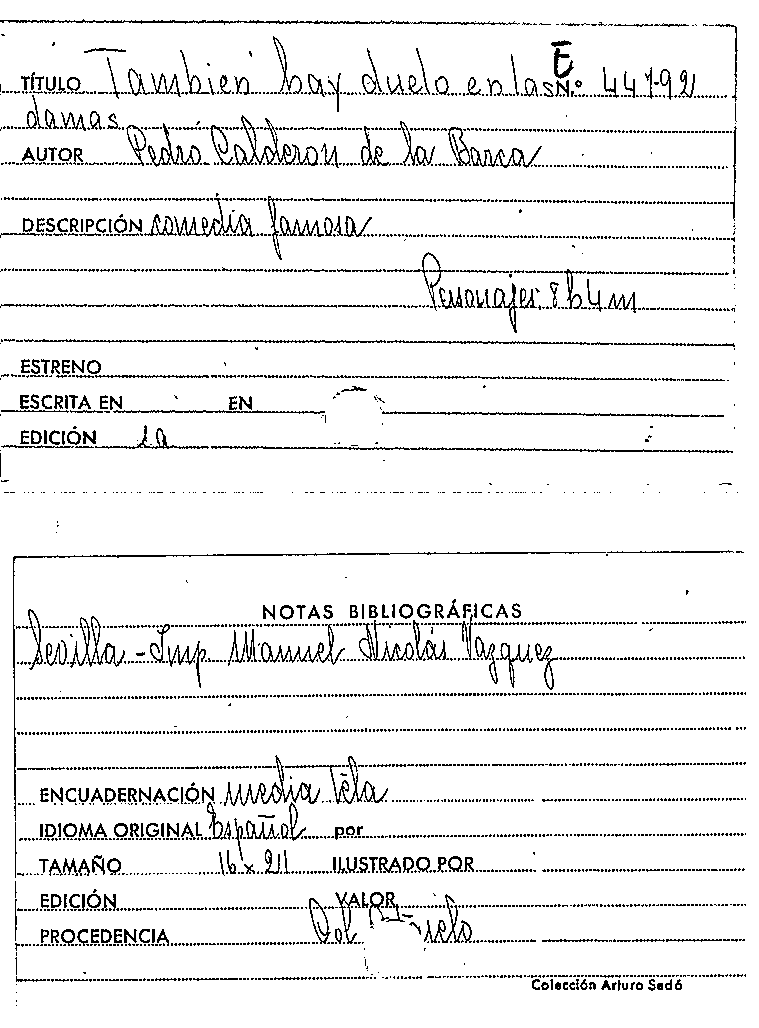 E
TÍTULO Tambien hay duelo en las N.º 44792
damas
AUTOR Pedro Calderon de la Barca
DESCRIPCIÓN comedia famosa
Personajes 8h4m
ESTRENO
ESCRITA EN EN
EDICIÓN 1a
NOTAS BIBLIOGRÁFICAS
Sevilla - Imp Manuel Nicolás Vazquez
ENCUADERNACIÓN media tela
IDIOMA ORIGINAL Español por
TAMAÑO 16 x 211 ILUSTRADO POR
EDICIÓN VALOR
PROCEDENCIA Col
Colección Arturo Sedó